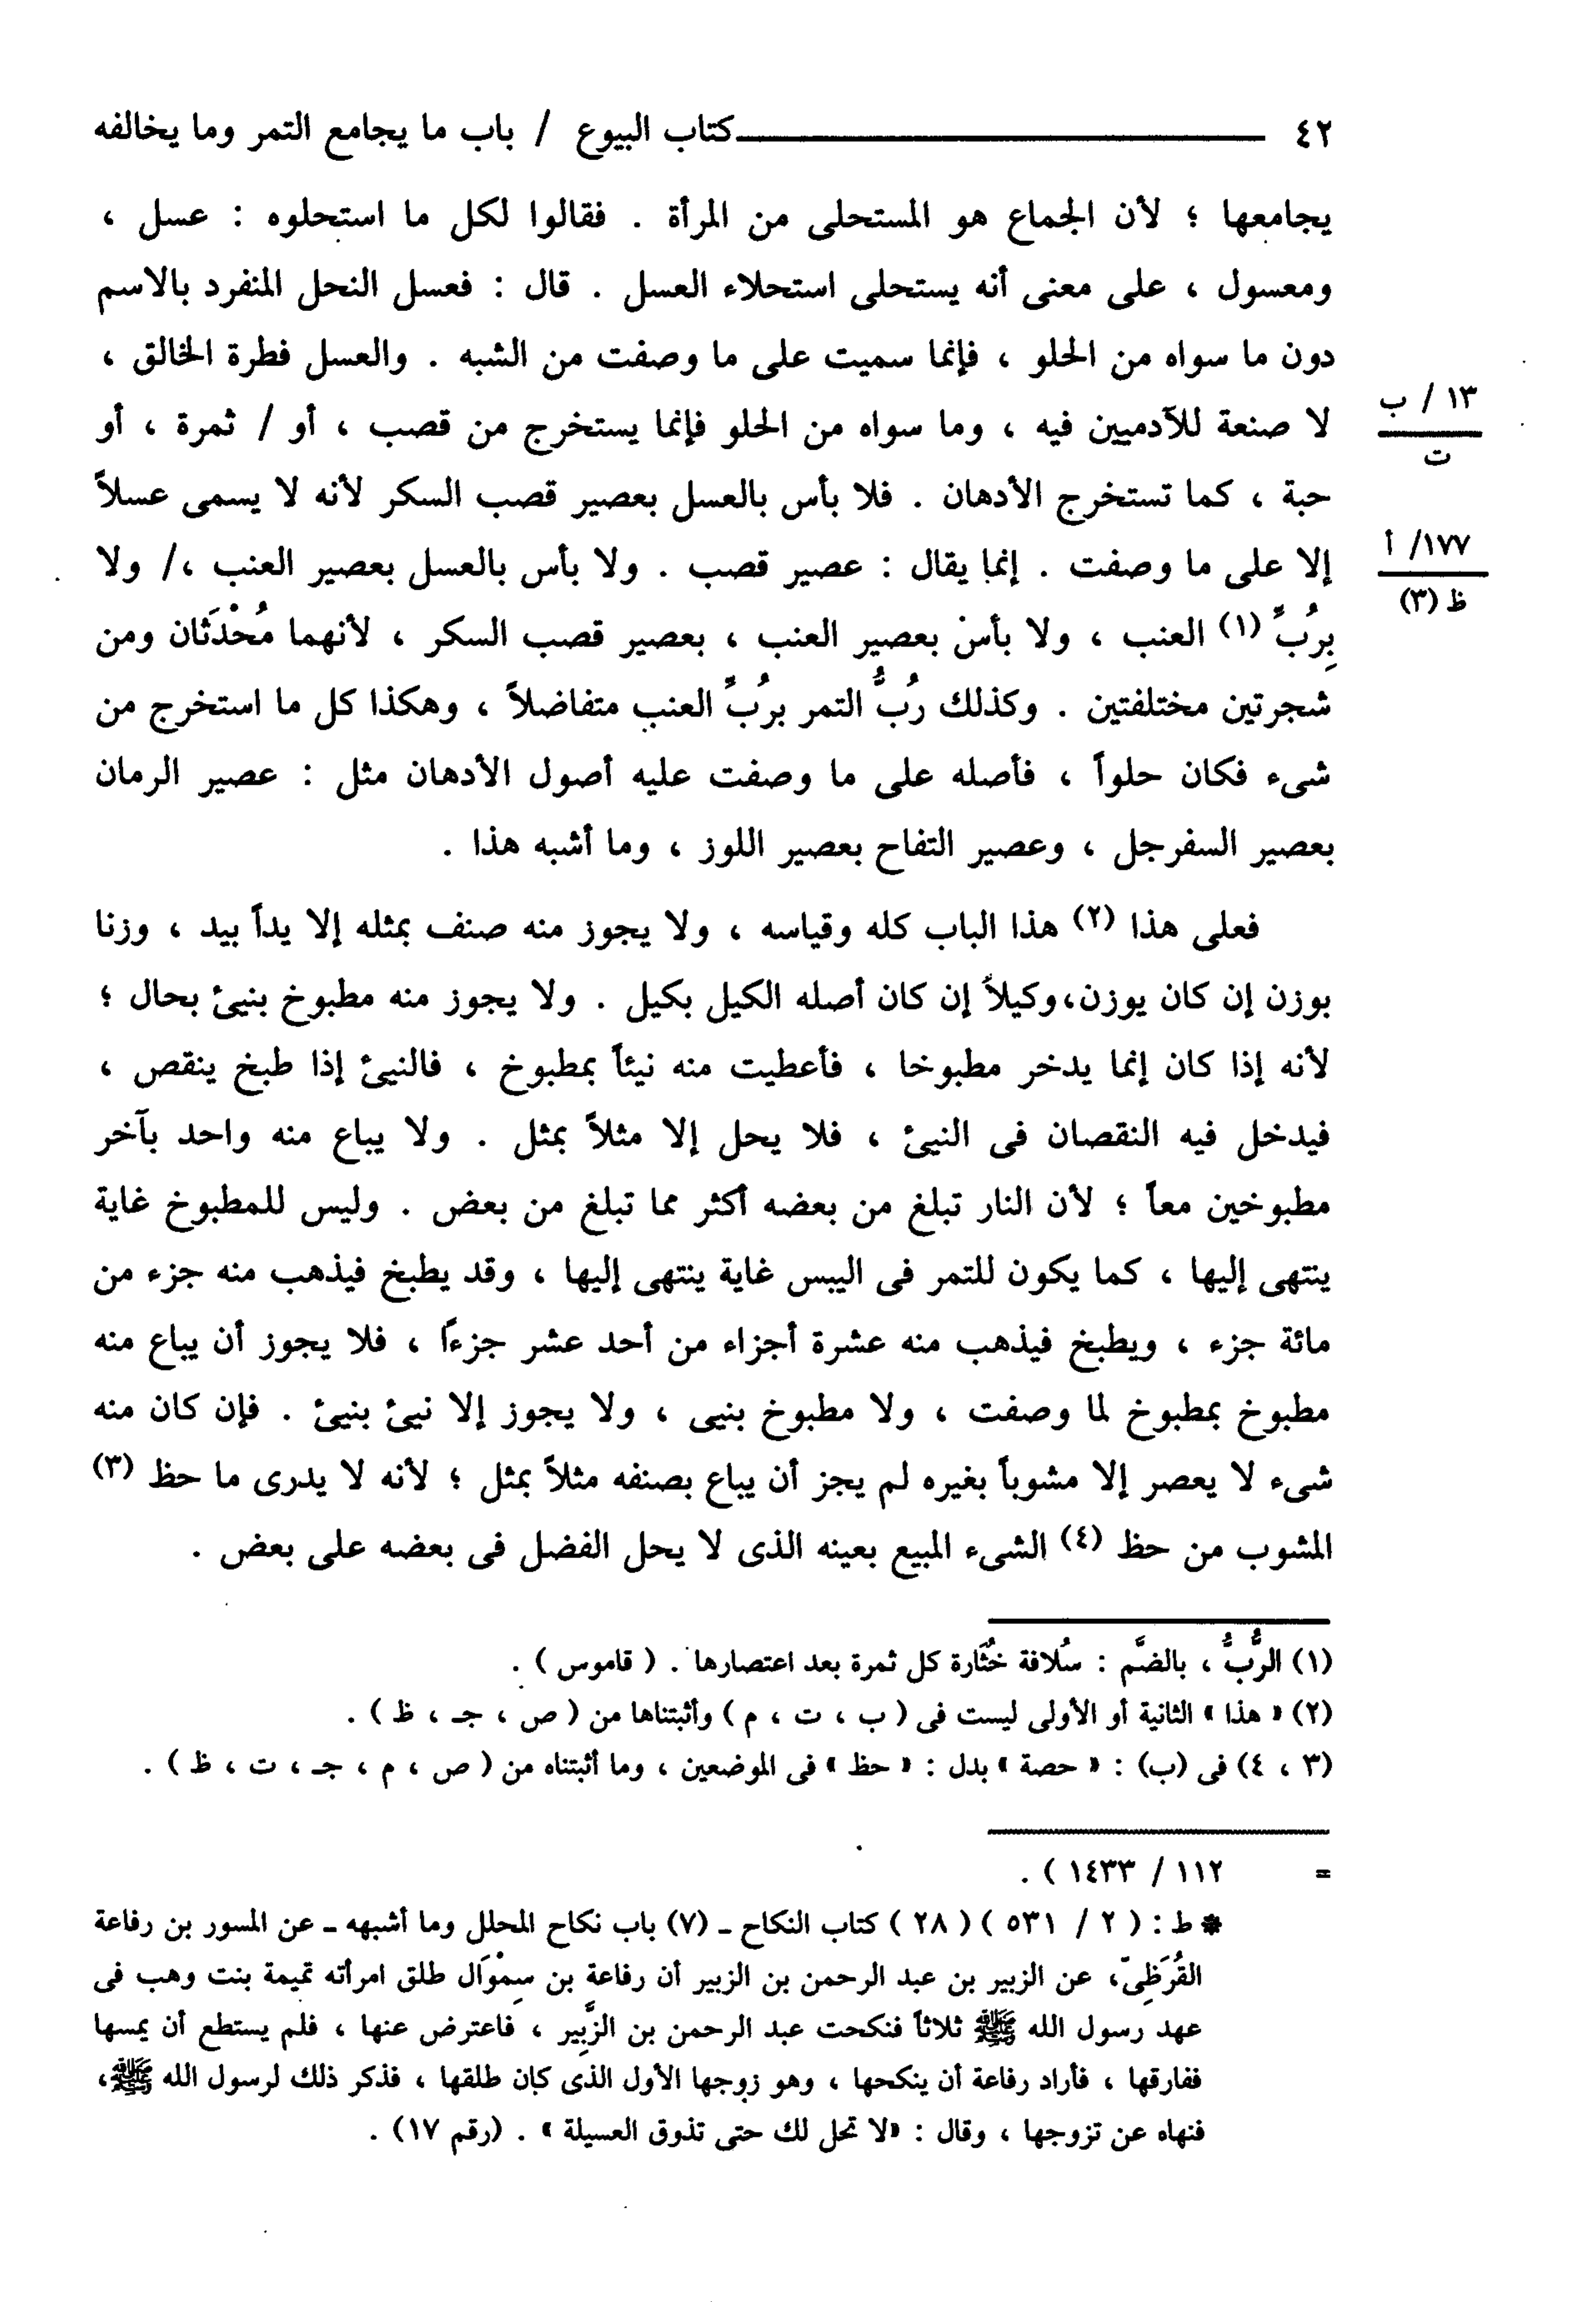 ٤٢ كتاب البيوع / باب ما يجامع التمر وما يخالفه
يجامعها ؛ لأن الجماع هو المستحلى من المرأة . فقالوا لكل ما استحلوه : عسل ،
ومعسول ، على معنى أنه يستحلى استحلاء العسل . قال : فعسل النحل المنفرد بالاسم
دون ما سواه من الحلو ، فإنما سميت على ما وصفت من الشبه . والعسل فطرة الخالق ،
لا صنعة للآدميين فيه ، وما سواه من الحلو فإنما يستخرج من قصب ، أو / ثمرة ، أو
١٣ / ب
ت
حبة ، كما تستخرج الأدهان . فلا بأس بالعسل بعصير قصب السكر لأنه لا يسمى عسلاً
إلا على ما وصفت . إنما يقال : عصير قصب . ولا بأس بالعسل بعصير العنب ،/ ولا
١٧٧/ أ
ظ (٣)
بِرُبِّ (١) العنب ، ولا بأس بعصير العنب ، بعصير قصب السكر ، لأنهما مُحْدَثان ومن
شجرتين مختلفتين . وكذلك رُبُّ التمر برُبِّ العنب متفاضلاً ، وهكذا كل ما استخرج من
شىء فكان حلواً ، فأصله على ما وصفت عليه أصول الأدهان مثل : عصير الرمان
بعصير السفرجل ، وعصير التفاح بعصير اللوز ، وما أشبه هذا .
فعلى هذا (٢) هذا الباب كله وقياسه ، ولا يجوز منه صنف بمثله إلا يداً بيد ، وزنا
بوزن إن كان يوزن،وكيلاً إن كان أصله الكيل بكيل . ولا يجوز منه مطبوخ بنيئ بحال ؛
لأنه إذا كان إنما يدخر مطبوخا ، فأعطيت منه نيئاً بمطبوخ ، فالنيئ إذا طبخ ينقص ،
فيدخل فيه النقصان فى النيئ ، فلا يحل إلا مثلاً بمثل . ولا يباع منه واحد بآخر
مطبوخين معاً ؛ لأن النار تبلغ من بعضه أكثر مما تبلغ من بعض . وليس للمطبوخ غاية
ينتهى إليها ، كما يكون للتمر فى اليبس غاية ينتهى إليها ، وقد يطبخ فيذهب منه جزء من
مائة جزء ، ويطبخ فيذهب منه عشرة أجزاء من أحد عشر جزءًا ، فلا يجوز أن يباع منه
مطبوخ بمطبوخ لما وصفت ، ولا مطبوخ بنيى ، ولا يجوز إلا نيئ بنيئ . فإن كان منه
شىء لا يعصر إلا مشوباً بغيره لم يجز أن يباع بصنفه مثلاً بمثل ؛ لأنه لا يدرى ما حظ (٣)
المشوب من حظ (٤) الشىء المبيع بعينه الذى لا يحل الفضل فى بعضه على بعض .
(١) الرُّبُّ ، بالضَّم : سُلافة خُثَارة كل ثمرة بعد اعتصارها . ( قاموس ) .
(٢) « هذا » الثانية أو الأولى ليست فى ( ب ، ت ، م ) وأثبتناها من ( ص ، جـ ، ظ ) .
(٣ ، ٤) فى (ب) : « حصة » بدل : « حظ » فى الموضعين ، وما أثبتناه من ( ص ، م ، جـ ، ت ، ظ ) .
= ١١٢ / ١٤٣٣ ) .
* ط : ( ٢ / ٥٣١ ) ( ٢٨ ) كتاب النكاح ـ (٧) باب نكاح المحلل وما أشبهه ـ عن المسور بن رفاعة
القُرَظِىّ، عن الزبير بن عبد الرحمن بن الزبير أن رفاعة بن سِمْوَال طلق امرأته تميمة بنت وهب فى
عهد رسول الله ﷺ ثلاثاً فنكحت عبد الرحمن بن الزَّبِير ، فاعترض عنها ، فلم يستطع أن يمسها
ففارقها ، فأراد رفاعة أن ينكحها ، وهو زوجها الأول الذى كان طلقها ، فذكر ذلك لرسول الله ﷺ،
فنهاه عن تزوجها ، وقال : «لا تحل لك حتى تذوق العسيلة » . (رقم ١٧) .